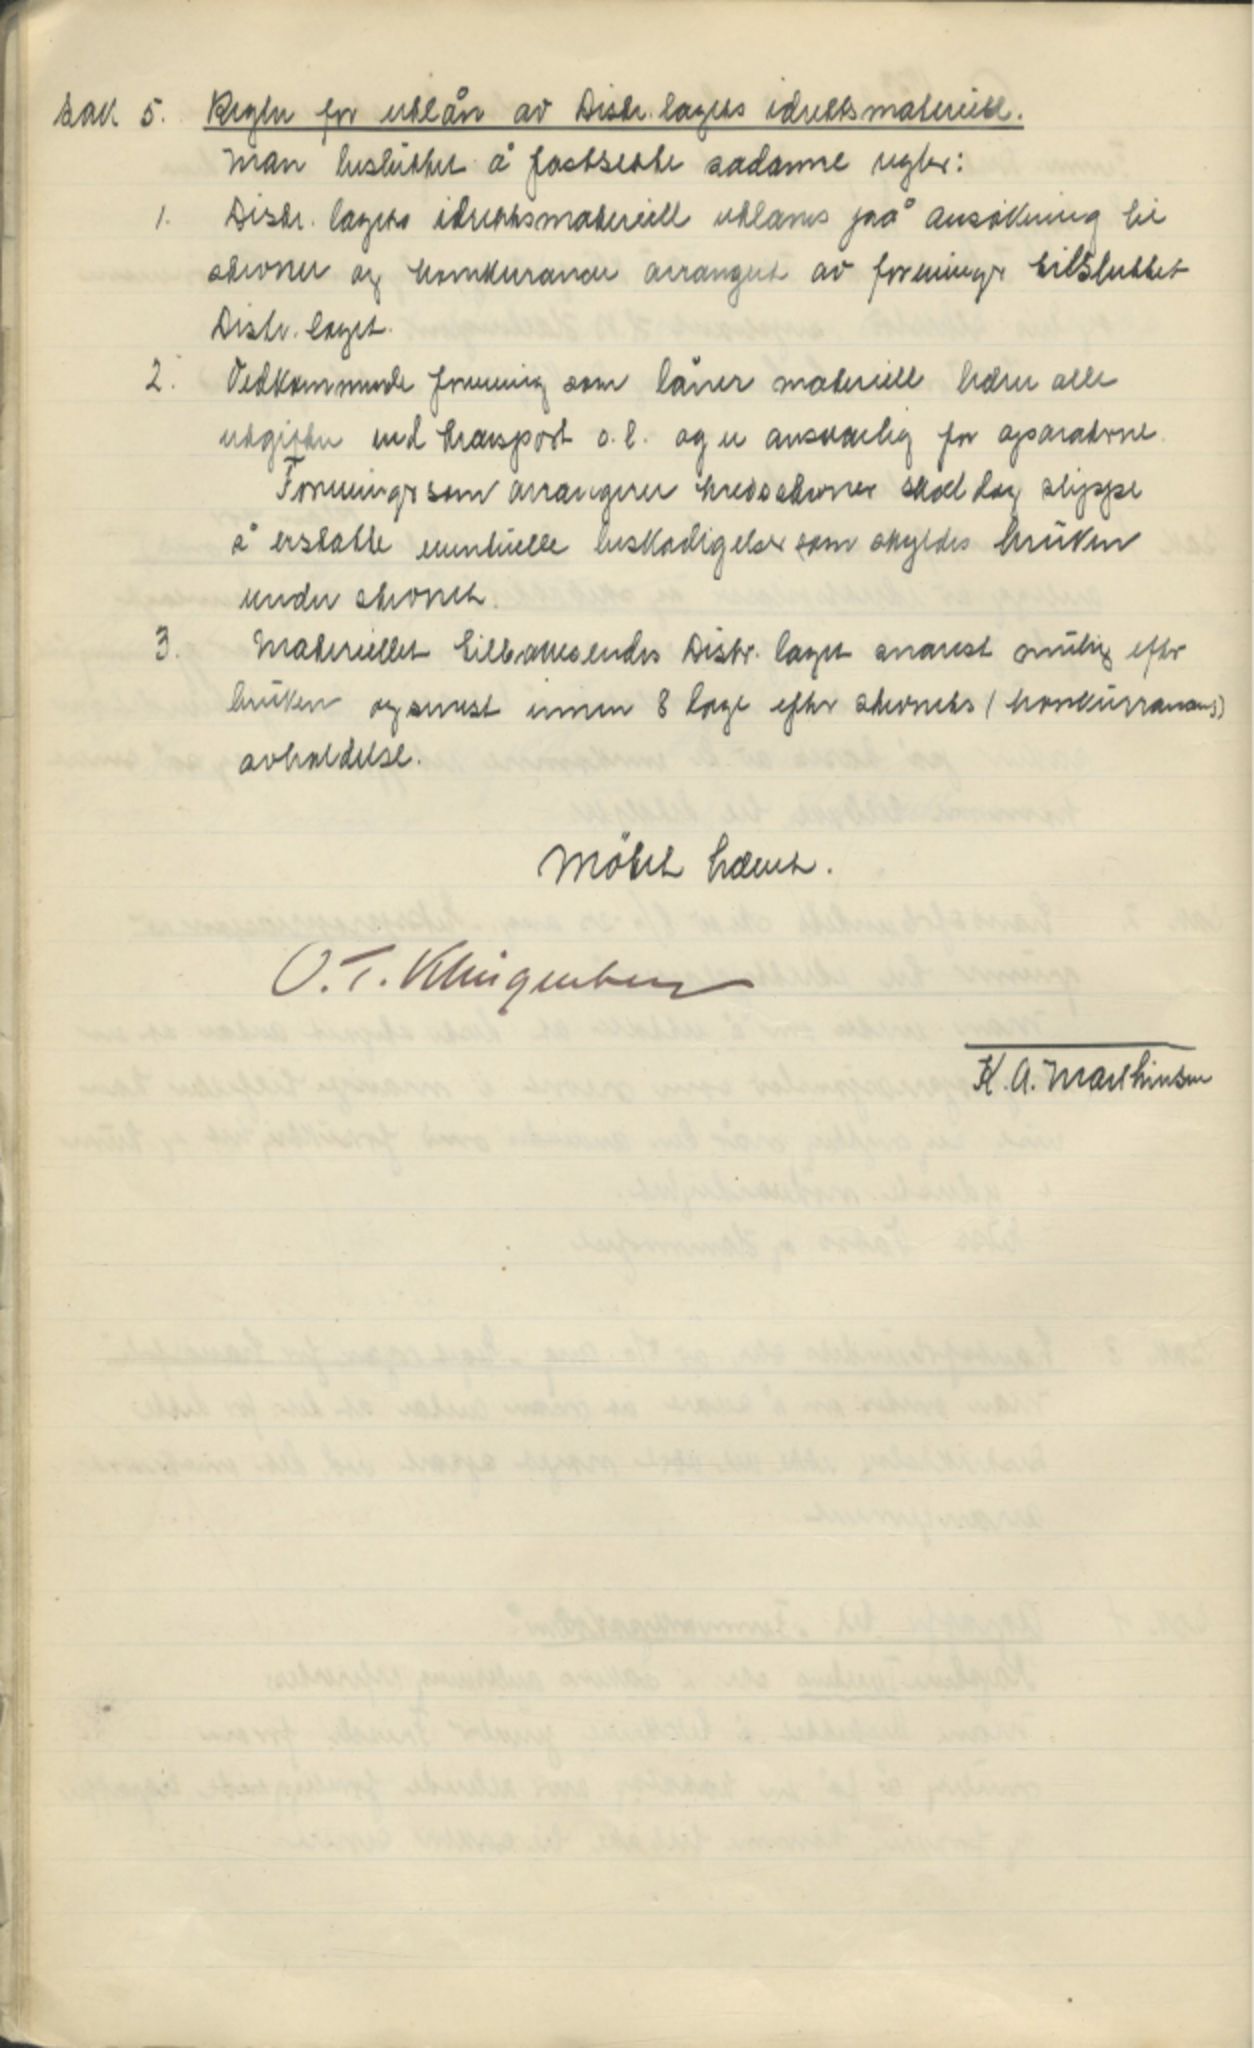 Sak 5. Regler for utlån av Distr. lagets idrettsmateriell.
Man besluttet å fastsette sadanne regler:
1. Distr. lagets idrettsmateriell utlånes på ansökning til
stevner og konkuranser arrangert av foreninger tilsluttet
Distr. laget.
2. Vedkommende forening som låner materiell bærer alle
utgifter ved transport o.l. og er ansvarlig for aparaterne.
Foreninger som arrangerer kredsstevner skal dog slippe
å erstatte eventuelle beskadigelser som skyldes brüken
under stevnet.
3. Materiellet tilbakesendes Distr. laget snarest mulig efter
brüken og senest innen 8 dage efter stevnets (konkürransens)
avholdelse.
Mötet hævet.
O. T. Klingenberg
K. A. Marthinsen